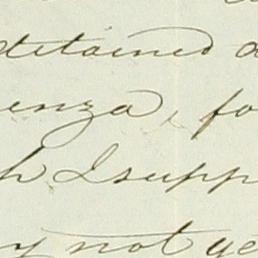 detained a
enza, fo
h I supp
y not ye